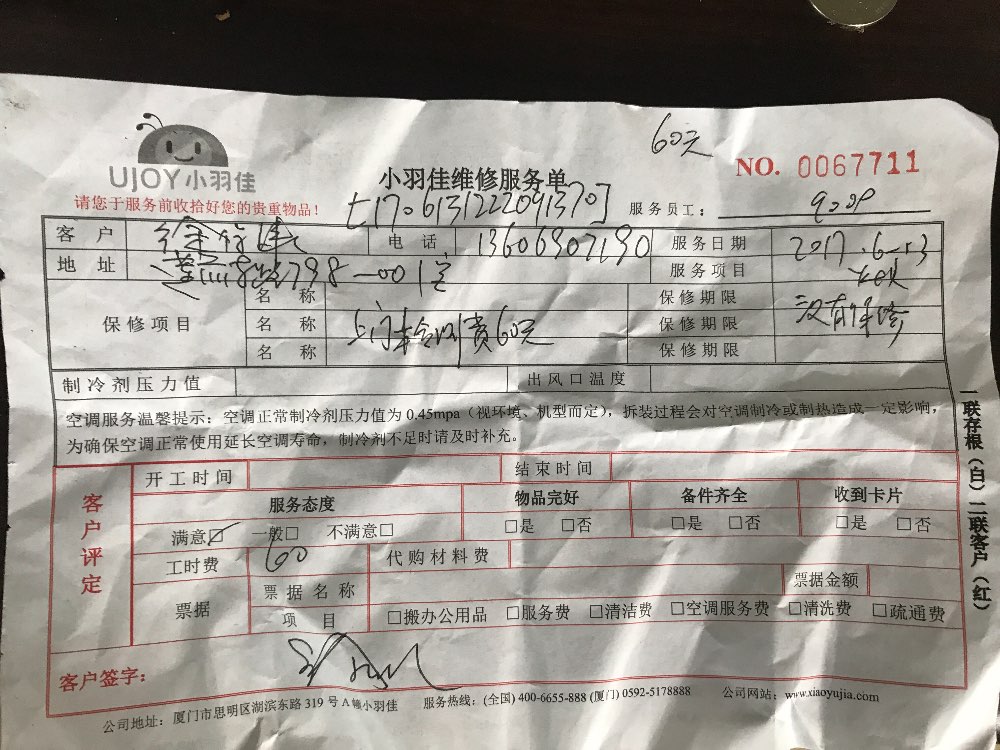 60元
NO. 0067711
UJOY小羽佳
小羽佳维修服务单
请您于服务前收拾好您的贵重物品！
[1706131222091370]
服务员工：
客 户
电 话 13606907190
服务日期 2017.6.13
地 址 798-001室
服务项目
保修项目
名 称
保修期限
名 称 上门检测费60元
保修期限 没有保修
名 称
保修期限
制冷剂压力值
出风口温度
空调服务温馨提示：空调正常制冷剂压力值为 0.45mpa（视环境、机型而定），拆装过程会对空调制冷或制热造成一定影响，
为确保空调正常使用延长空调寿命，制冷剂不足时请及时补充。
客户评定
开工时间
结束时间
服务态度 物品完好 备件齐全 收到卡片
满意☑ 一般□ 不满意□ □是 □否 □是 □否 □是 □否
工时费 60 代购材料费
票据
票据名称
票据金额
项 目 □搬办公用品 □服务费 □清洁费 □空调服务费 □清洗费 □疏通费
客户签字：
公司地址：厦门市思明区湖滨东路 319 号 A幢小羽佳 服务热线：(全国) 400-6655-888 (厦门) 0592-5178888 公司网站：www.xiaoyujia.com
一联存根（白）二联客户（红）